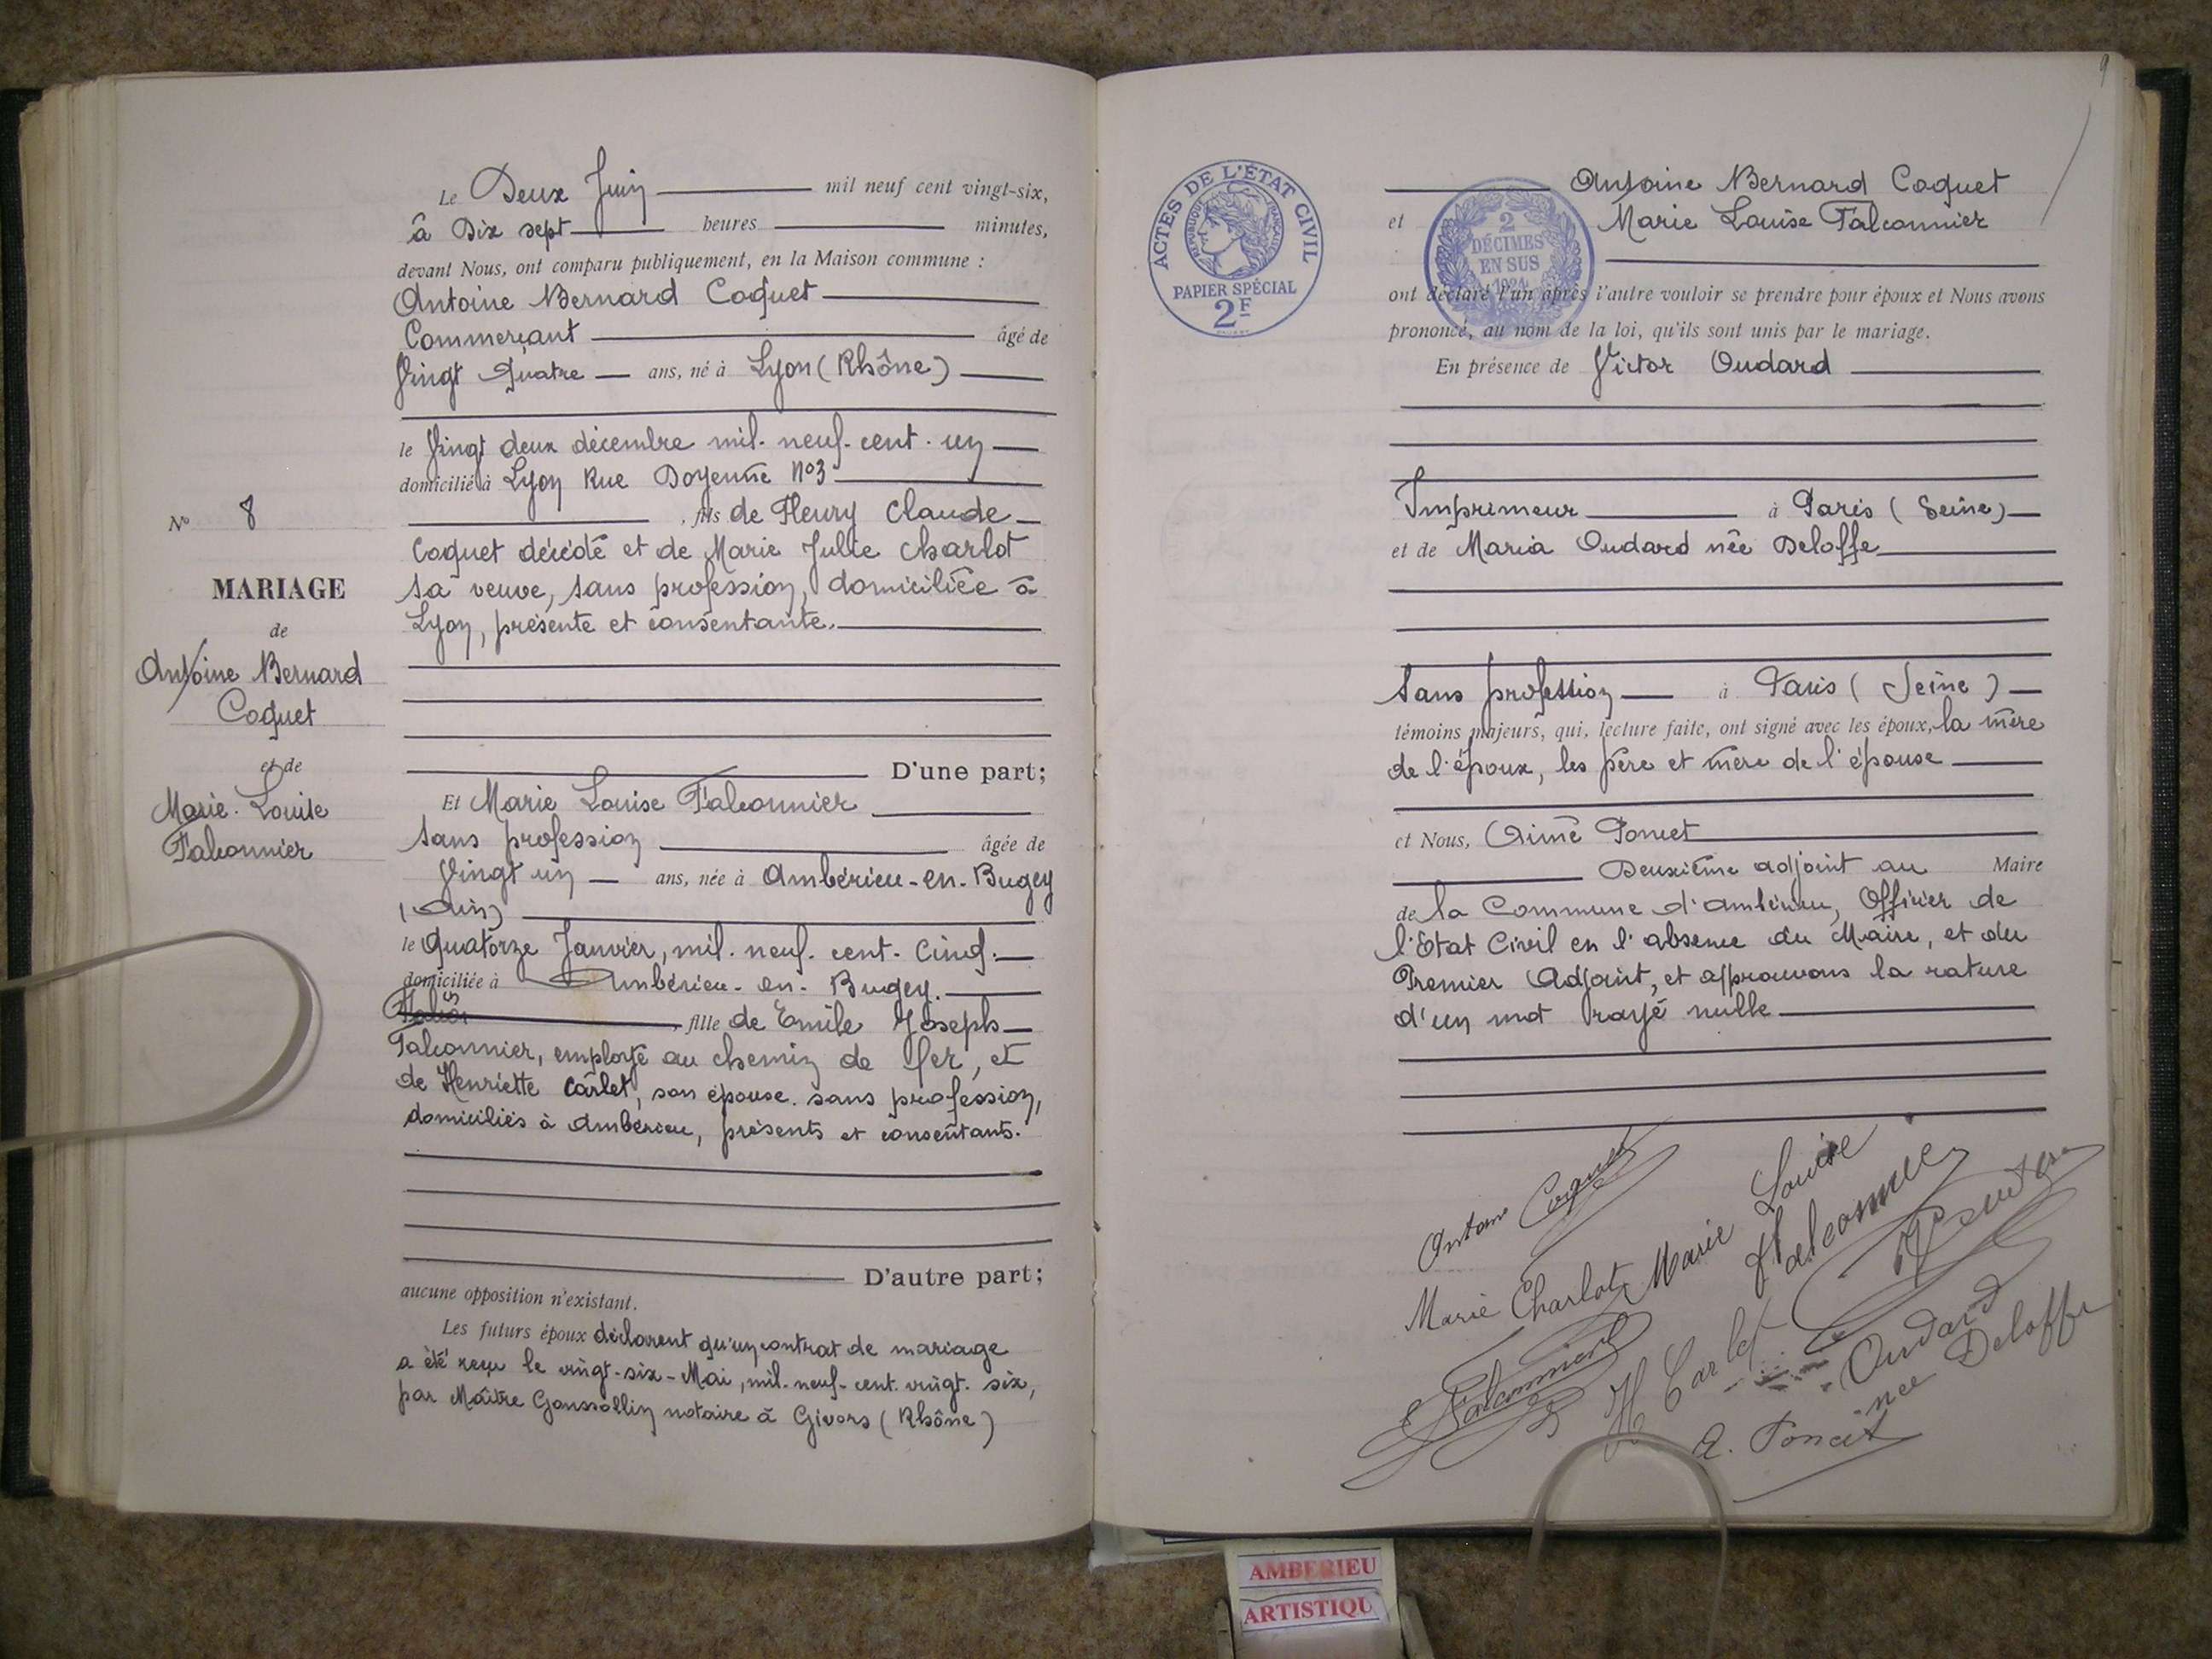 Le Deux Juin mil neuf cent vingt-six,
à Dix sept heures minutes,
devant Nous, ont comparu publiquement, en la Maison commune :
Antoine Bernard Coquet
Commerçant âgé de
Vingt Quatre ans, né à Lyon (Rhône)
le Vingt deux décembre mil. neuf. cent. un
domicilié à Lyon Rue Doyenné N°3
, fils de Fleury Claude
Coquet décédé et de Marie Julie Charlot
sa veuve, sans profession, domiciliée à
Lyon, présente et consentante.
D'une part;
Et Marie Louise Falconnier
sans profession âgée de
Vingt un ans, née à Ambérieu-en-Bugey
(Ain)
le Quatorze Janvier, mil. neuf. cent. cinq.
domiciliée à Ambérieu-en-Bugey.
, fille de Emile Joseph
Falconnier, employé au chemin de fer, et
de Henriette Carlet, son épouse. sans profession,
domiciliés à Ambérieu, présents et consentants.
D'autre part;
aucune opposition n'existant.
Les futurs époux déclarent qu'un contrat de mariage
a été reçu le vingt-six-Mai, mil-neuf-cent. vingt. six,
par Maître Goussollin notaire à Givors (Rhône)
N° 8
MARIAGE
de
Antoine Bernard
Coquet
et de
Marie. Louise
Falconnier
9
ACTES DE L'ÉTAT CIVIL
RÉPUBLIQUE FRANÇAISE
PAPIER SPÉCIAL
2F
2
DÉCIMES
EN SUS
1924
Antoine Bernard Coquet
et Marie Louise Falconnier
ont déclaré l'un après l'autre vouloir se prendre pour époux et Nous avons
prononcé, au nom de la loi, qu'ils sont unis par le mariage.
En présence de Victor Oudard
Imprimeur à Paris (Seine)
et de Maria Oudard née Deloffe
Sans profession à Paris (Seine)
témoins majeurs, qui, lecture faite, ont signé avec les époux, la mère
de l'époux, les père et mère de l'épouse
et Nous, Aimé Poncet
Deuxième adjoint au Maire
de la Commune d'Ambérieu, Officier de
l'Etat Civil en l'absence du Maire, et du
Premier Adjoint, et approuvons la rature
d'un mot rayé nulle
Antoine Coquet
Marie Louise
Falconnier
Marie Charlot
Falconnier
H Carlet
Oudard
née Deloffe
A. Poncet
AMBERIEU
ARTISTIQU